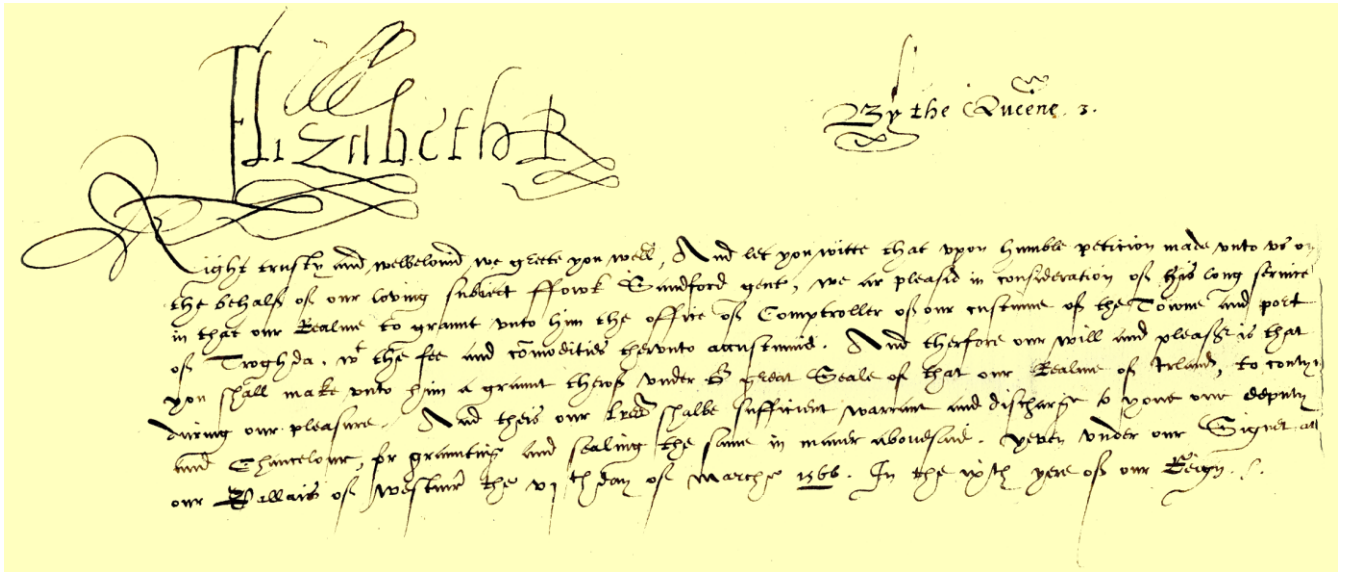 Elizabeth R
By the Queene. 3.
Right trusty and welbelovid, we greete you well, And let you witte that upon humble peticion made unto us on
the behalf of our loving subiect ffowk Sandford gent, we ar pleasid in consideration of his long service
in that our Realme to graunt unto him the office of Comptroller of our custume of the Towne and port
of Troghda. wt the fee and comodities therunto accustumid. And therfore our will and pleasr is that
you shall make unto him a graunt therof under ye great Seale of that our Realme of Irland, to contyn
during our pleasure. And theis our lres shalbe sufficient warrant and discharge to you our deputy
and Chancelour, for graunting and sealing the same in maner abovesaid. yeven under our Signet at
our Pallais of westmr the vj th day of march 1566. In the ixth yere of our Reign.